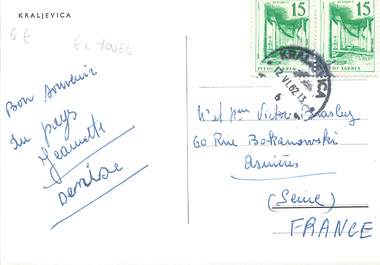 KRALJEVICA
6 €
Bon souvenir
du pays
Jeannette
Denise
15
15
JUGOSLAVIJA
KRALJEVICA
12.VI.62.13
6
M et Mme Victor
60 Rue Bokanowski
Asnières
(Seine)
FRANCE